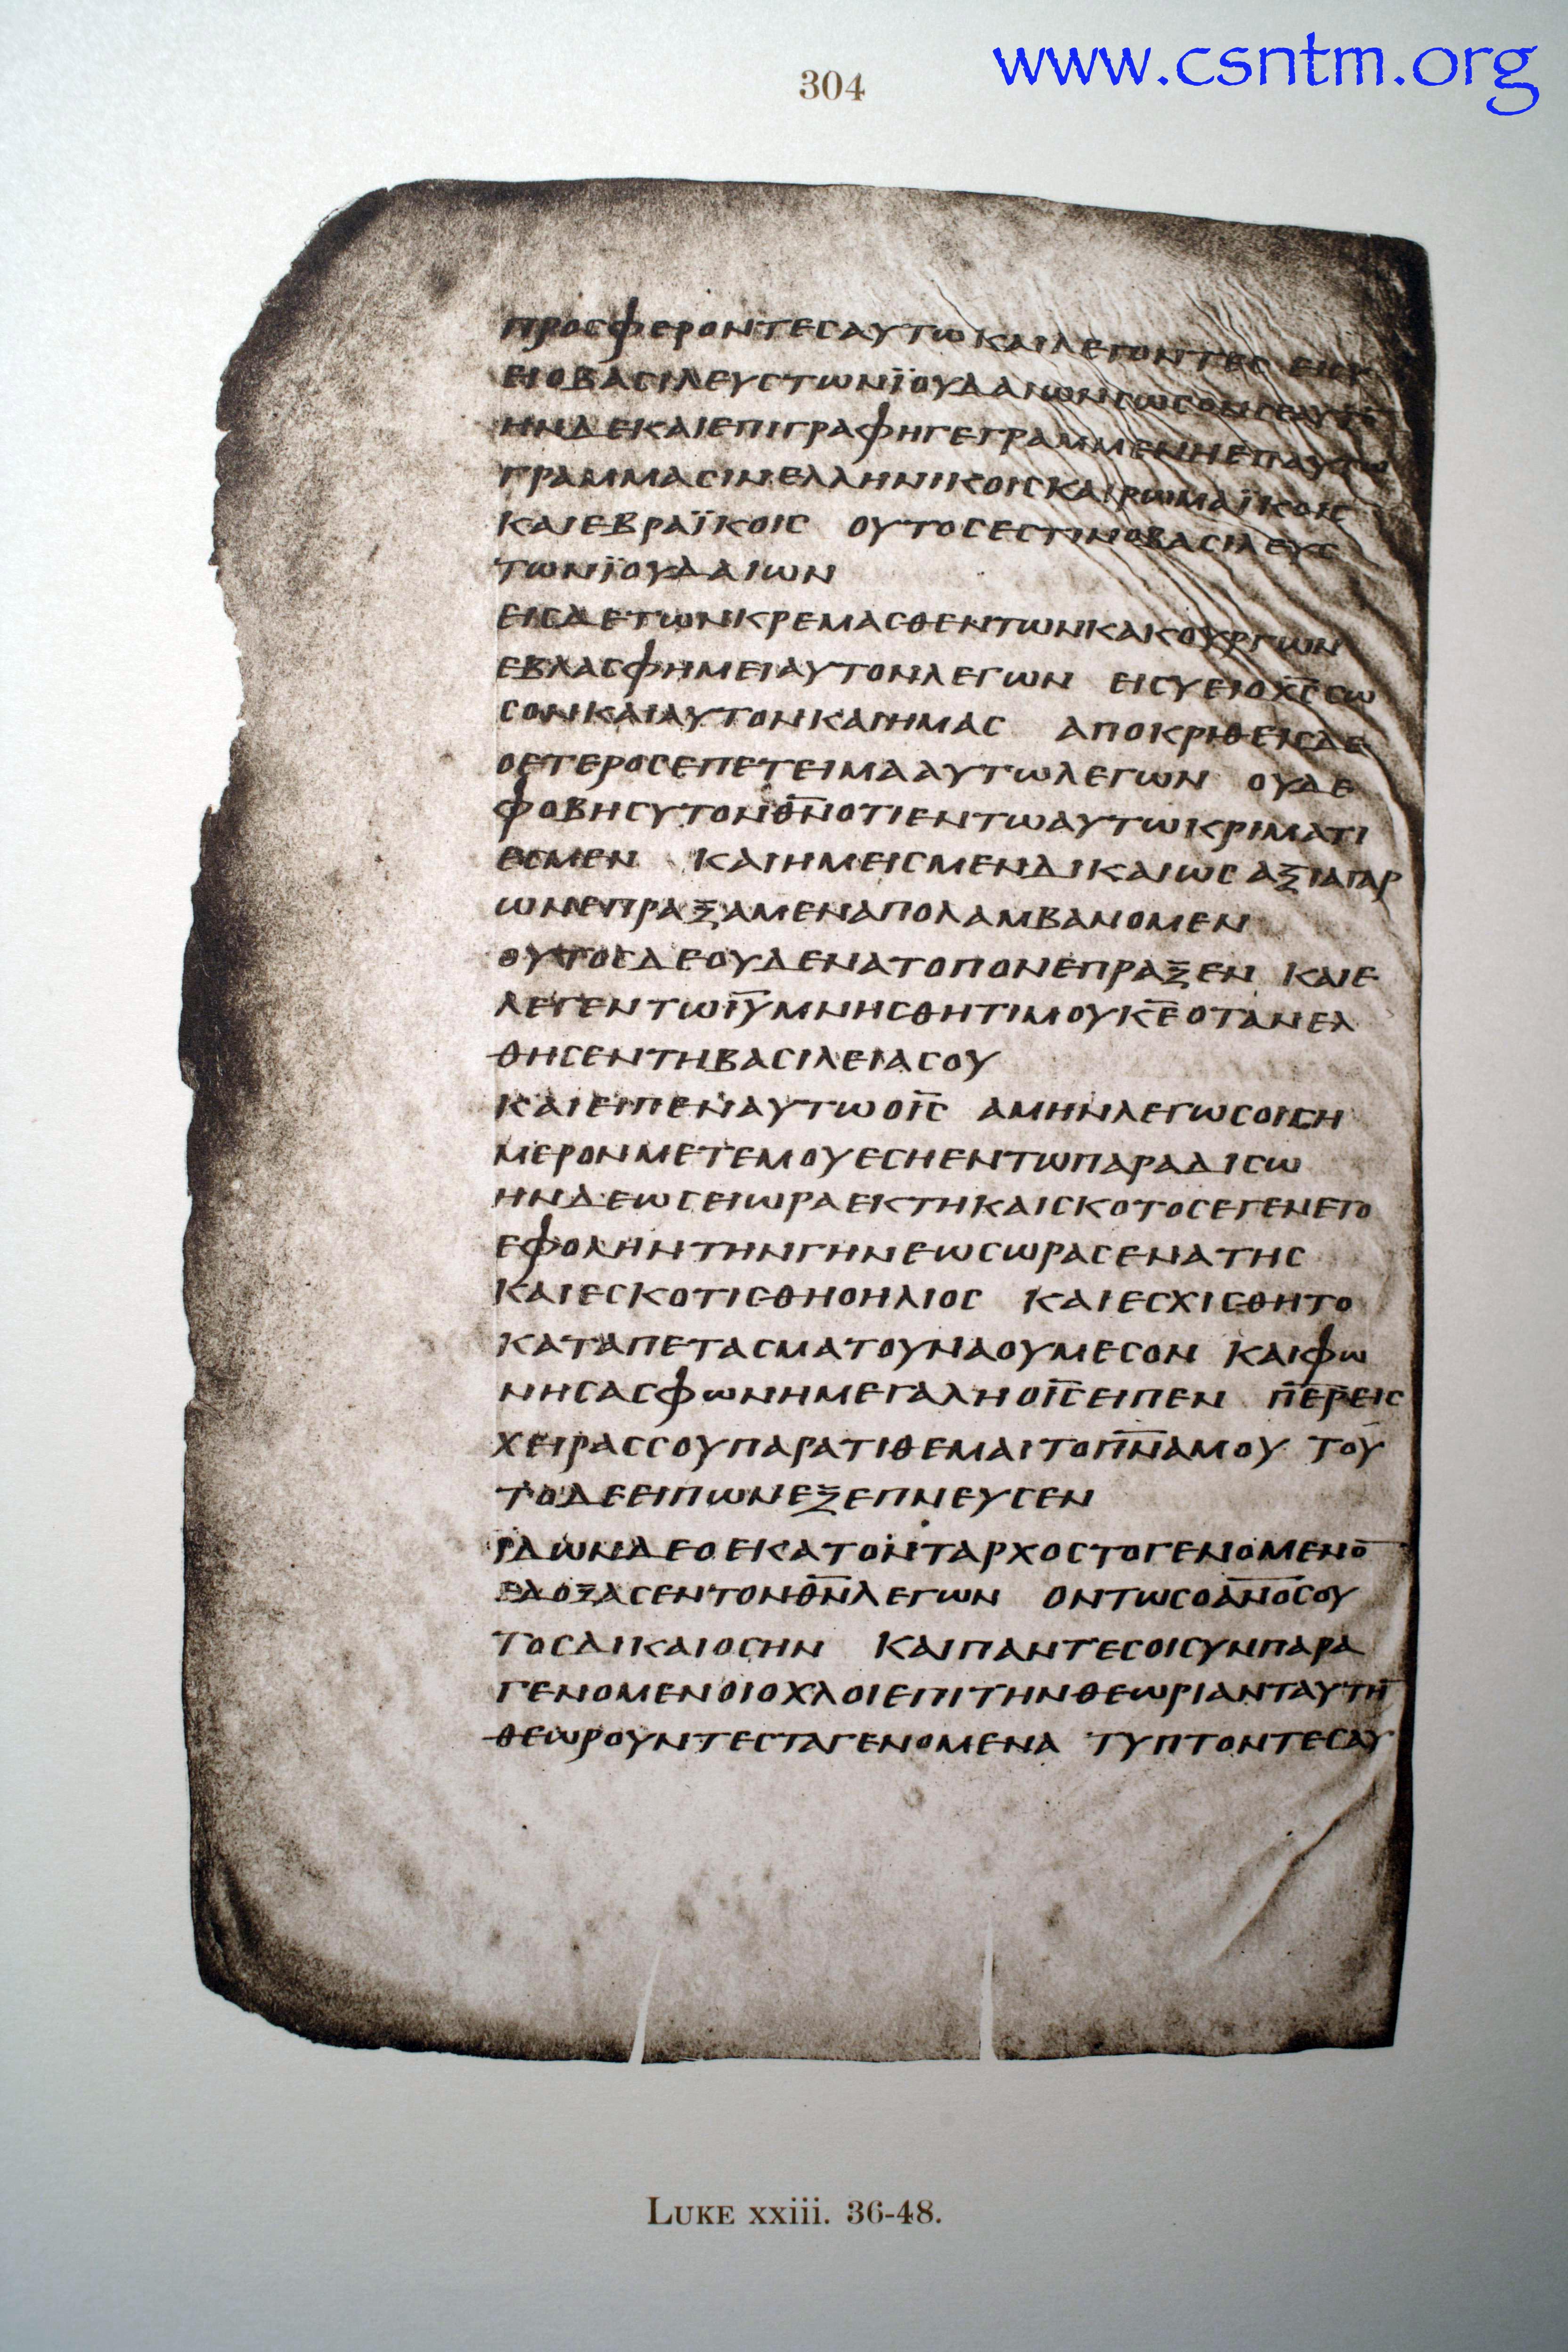 304
www.csntm.org
ΠΡΟCΦΕΡΟΝΤΕCΑΥΤΩΚΑΙΛΕΓΟΝΤΕC
ΕΙΟΒΑCΙΛΕΥCΤΩΝΪΟΥΔΑΙΩΝCΩCΟΝCΕΑΥΤΟ
ΗΝΔΕΚΑΙΕΠΙΓΡΑΦΗΓΕΓΡΑΜΜΕΝΗΕΠΑΥΤΩ
ΓΡΑΜΜΑCΙΝΕΛΛΗΝΙΚΟΙCΚΑΙΡΩΜΑΪΚΟΙC
ΚΑΙΕΒΡΑΪΚΟΙC ΟΥΤΟCΕCΤΙΝΟΒΑCΙΛΕΥC
ΤΩΝΪΟΥΔΑΙΩΝ
ΕΙCΔΕΤΩΝΚΡΕΜΑCΘΕΝΤΩΝΚΑΚΟΥΡΓΩΝ
ΕΒΛΑCΦΗΜΕΙΑΥΤΟΝΛΕΓΩΝ ΕΙCΥΕΙΟΧ̅C̅CΩ
CΟΝΚΑΙΑΥΤΟΝΚΑΙΗΜΑC ΑΠΟΚΡΙΘΕΙCΔΕ
ΟΕΤΕΡΟCΕΠΕΤΕΙΜΑΑΥΤΩΛΕΓΩΝ ΟΥΔΕ
ΦΟΒΗCΥΤΟΝΘ̅Ν̅ΟΤΙΕΝΤΩΑΥΤΩΚΡΙΜΑΤΙ
ΕCΜΕΝ ΚΑΙΗΜΕΙCΜΕΝΔΙΚΑΙΩC ΑΞΙΑΓΑΡ
ΩΝΕΠΡΑΞΑΜΕΝΑΠΟΛΑΜΒΑΝΟΜΕΝ
ΟΥΤΟCΔΕΟΥΔΕΝΑΤΟΠΟΝΕΠΡΑΞΕΝ ΚΑΙΕ
ΛΕΓΕΝΤΩΙ̅Υ̅ΜΝΗCΘΗΤΙΜΟΥΚ̅Ε̅ΟΤΑΝΕΛ
ΘΗCΕΝΤΗΒΑCΙΛΕΙΑCΟΥ
ΚΑΙΕΙΠΕΝΑΥΤΩΟΙ̅C̅ ΑΜΗΝΛΕΓΩCΟΙCΗ
ΜΕΡΟΝΜΕΤΕΜΟΥΕCΗΕΝΤΩΠΑΡΑΔΙCΩ
ΗΝΔΕΩCΕΙΩΡΑΕΚΤΗΚΑΙCΚΟΤΟCΕΓΕΝΕΤΟ
ΕΦΟΛΗΝΤΗΝΓΗΝΕΩCΩΡΑCΕΝΑΤΗC
ΚΑΙΕCΚΟΤΙCΘΗΟΗΛΙΟC ΚΑΙΕCΧΙCΘΗΤΟ
ΚΑΤΑΠΕΤΑCΜΑΤΟΥΝΑΟΥΜΕCΟΝ ΚΑΙΦΩ
ΝΗCΑCΦΩΝΗΜΕΓΑΛΗΟΙ̅C̅ΕΙΠΕΝ Π̅Ε̅Ρ̅ΕΙC
ΧΕΙΡΑCCΟΥΠΑΡΑΤΙΘΕΜΑΙΤΟΠ̅Ν̅Α̅ΜΟΥ ΤΟΥ
ΤΟΔΕΕΙΠΩΝΕΞΕΠΝΕΥCΕΝ
ΪΔΩΝΔΕΟΕΚΑΤΟΝΤΑΡΧΟCΤΟΓΕΝΟΜΕΝΟ̅
ΕΔΟΞΑCΕΝΤΟΝΘ̅Ν̅ΛΕΓΩΝ ΟΝΤΩCΟΑ̅Ν̅Ο̅C̅ΟΥ
ΤΟCΔΙΚΑΙΟCΗΝ ΚΑΙΠΑΝΤΕCΟΙCΥΝΠΑΡΑ
ΓΕΝΟΜΕΝΟΙΟΧΛΟΙΕΠΙΤΗΝΘΕΩΡΙΑΝΤΑΥΤΗ̅
ΘΕΩΡΟΥΝΤΕCΤΑΓΕΝΟΜΕΝΑ ΤΥΠΤΟΝΤΕCΑΥ
LUKE xxiii. 36-48.